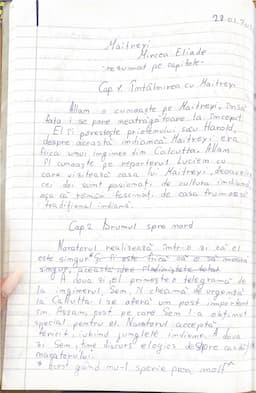 Maitreyi
Mircea Eliade
-rezumat pe capitole-
Cap 1. Întâlnirea cu Maitreyi
Allan o cunoaște pe Maitreyi, însă
fata i se pare neatrăgătoare la început.
El îi povestește prietenului său Harold,
despre această indiancă Maitreyi, era
fiica unui inginer din Calcutta. Allan
îl cunoaște pe reporterul Lucien cu
care vizitează casa lui Maitreyi, deoarece
cei doi sunt pasionați de cultura indiană
așa că rămân fascinați de casa frumoasă
tradițional indiană.
Cap 2. Drumul spre nord
Naratorul realizează într-o zi că el
este singur* și îi este frică că o să moară
singur, această idee
A doua zi, el primește o telegramă de
la inginerul Sen, îl cheamă de urgență
la Calcutta. I se oferă un post important
în Assam, post pe care Sen l-a obținut
special pentru el. Naratorul acceptă
fericit, iubind junglele indiene. A doua
zi Sen, ține discurs elogios despre
* acest gând nu-l sperie prea mult